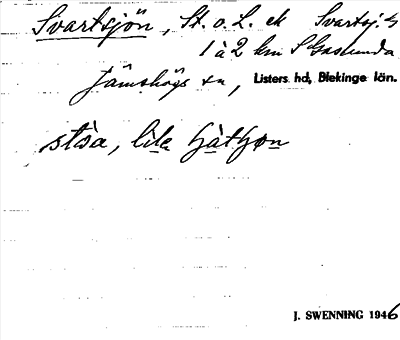 Svartsjön, St. o. L. ek Svartsj. G
1 à 2 km S Gaslunda
Jämshögs sn, Listers hd, Blekinge län.
stòa, lila
J. SWENNING 1946